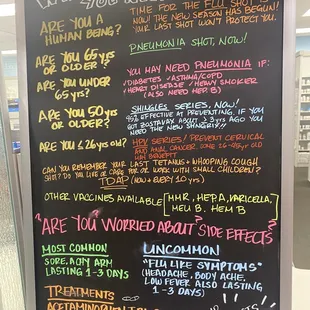 ARE YOU A
HUMAN BEING?
TIME FOR THE FLU SHOT
NOW! THE NEW SEASON HAS BEGUN!
YOUR LAST SHOT WON'T PROTECT YOU.
ARE YOU 65 YRS
OR OLDER?
PNEUMONIA SHOT, NOW!
ARE YOU UNDER
65 YRS?
YOU MAY NEED PNEUMONIA IF:
DIABETES ASTHMA/COPD
HEART DISEASE HEAVY SMOKER
(ALSO NEED HEP B)
ARE YOU 50 YRS
OR OLDER?
SHINGLES SERIES, NOW!
EFFECTIVE AT PREVENTING. IF YOU
GOT ZOSTAVAX ABOUT 2-3 YRS AGO YOU
NEED THE NEW SHINGRIX!
ARE YOU ≤26 YRS OLD?
HPV SERIES/ PREVENT CERVICAL
AND ANAL CANCER. SOME 26-45 YR OLD
MAY BENEFIT
CAN YOU REMEMBER YOUR LAST TETANUS + WHOOPING COUGH
SHOT? DO YOU LIVE OR CARE FOR OR WORK WITH SMALL CHILDREN?
TDAP (NOW + EVERY 10 YRS)
OTHER VACCINES AVAILABLE
MMR, HEP A, VARICELLA,
MEN B. HEM B
"ARE YOU WORRIED ABOUT? SIDE EFFECTS"
MOST COMMON
SORE, ACHY ARM
LASTING 1-3 DAYS
UNCOMMON
"FLU LIKE SYMPTOMS"
(HEADACHE, BODY ACHE,
LOW FEVER ALSO LASTING
1-3 DAYS)
TREATMENTS